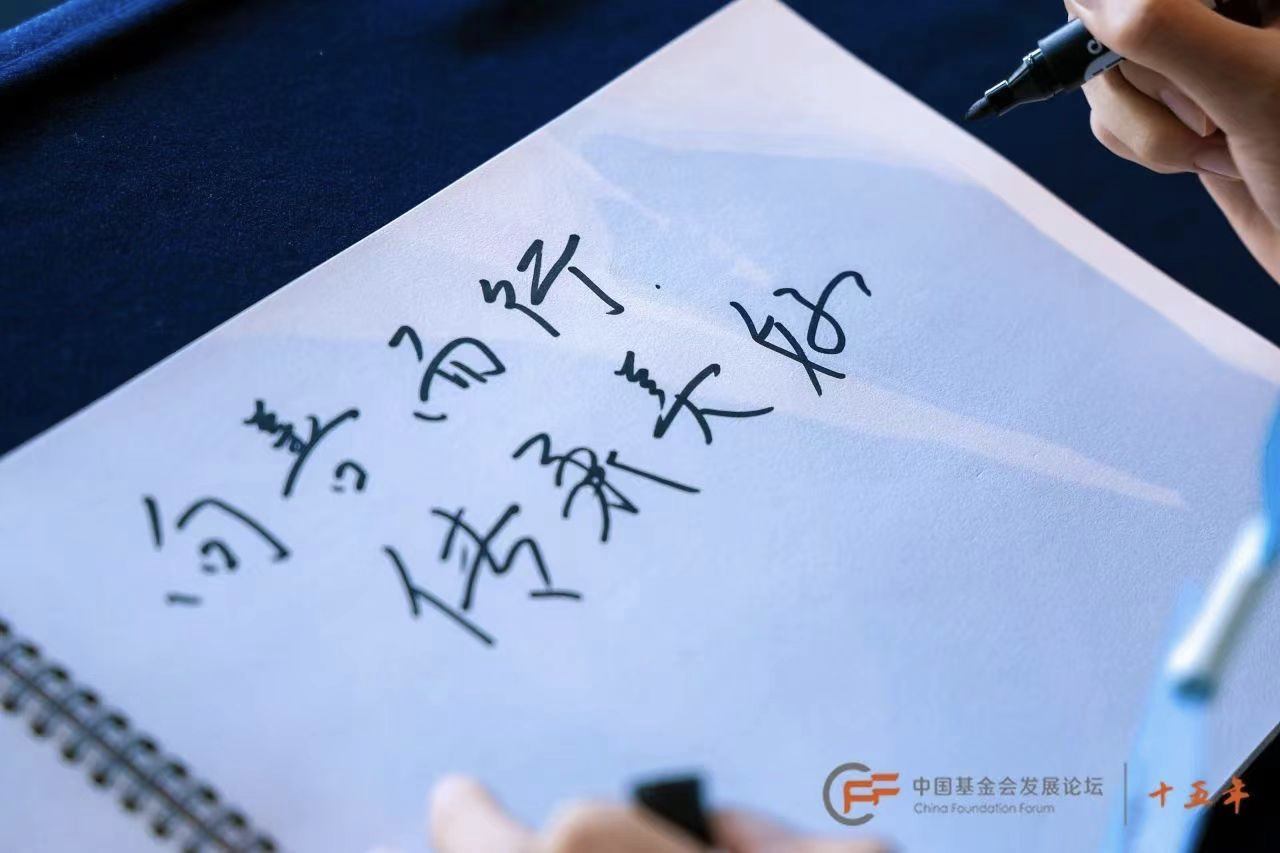 向善而行.
传承美好
中国基金会发展论坛
China Foundation Forum
十五年